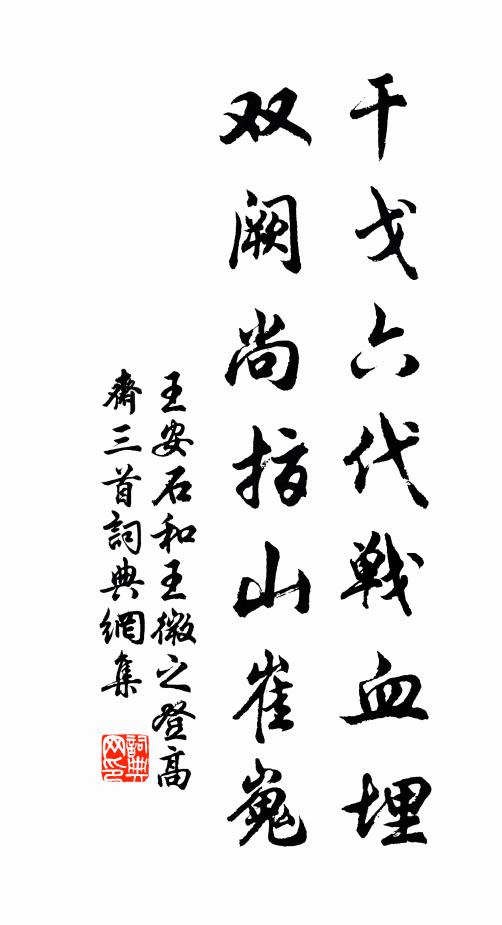 干戈六代戦血埋
双阙尚指山崔嵬
王安石和王微之登高
齋三首詞典網集
詞典
网印